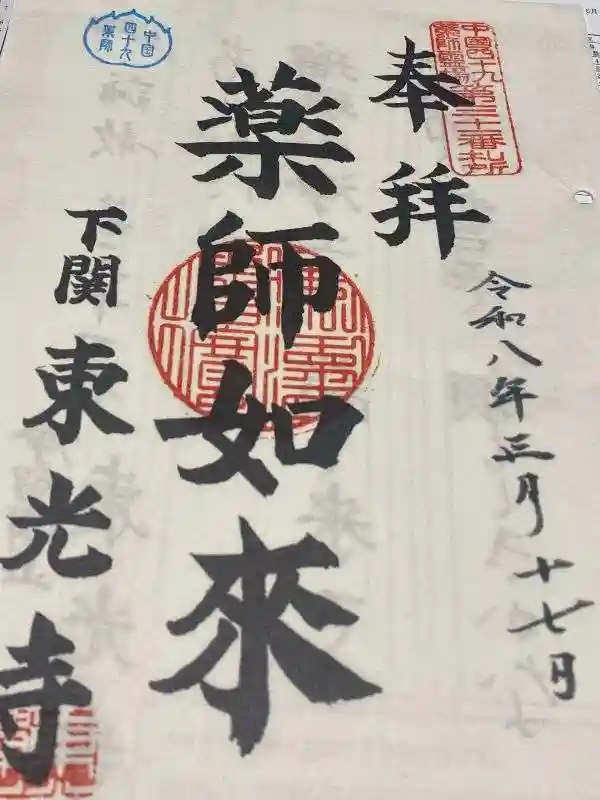 中国四十九
薬師霊場
第三十番札所
奉拝
令和八年三月十七日
薬師如來
中国
四十九
薬師
下関
東光寺